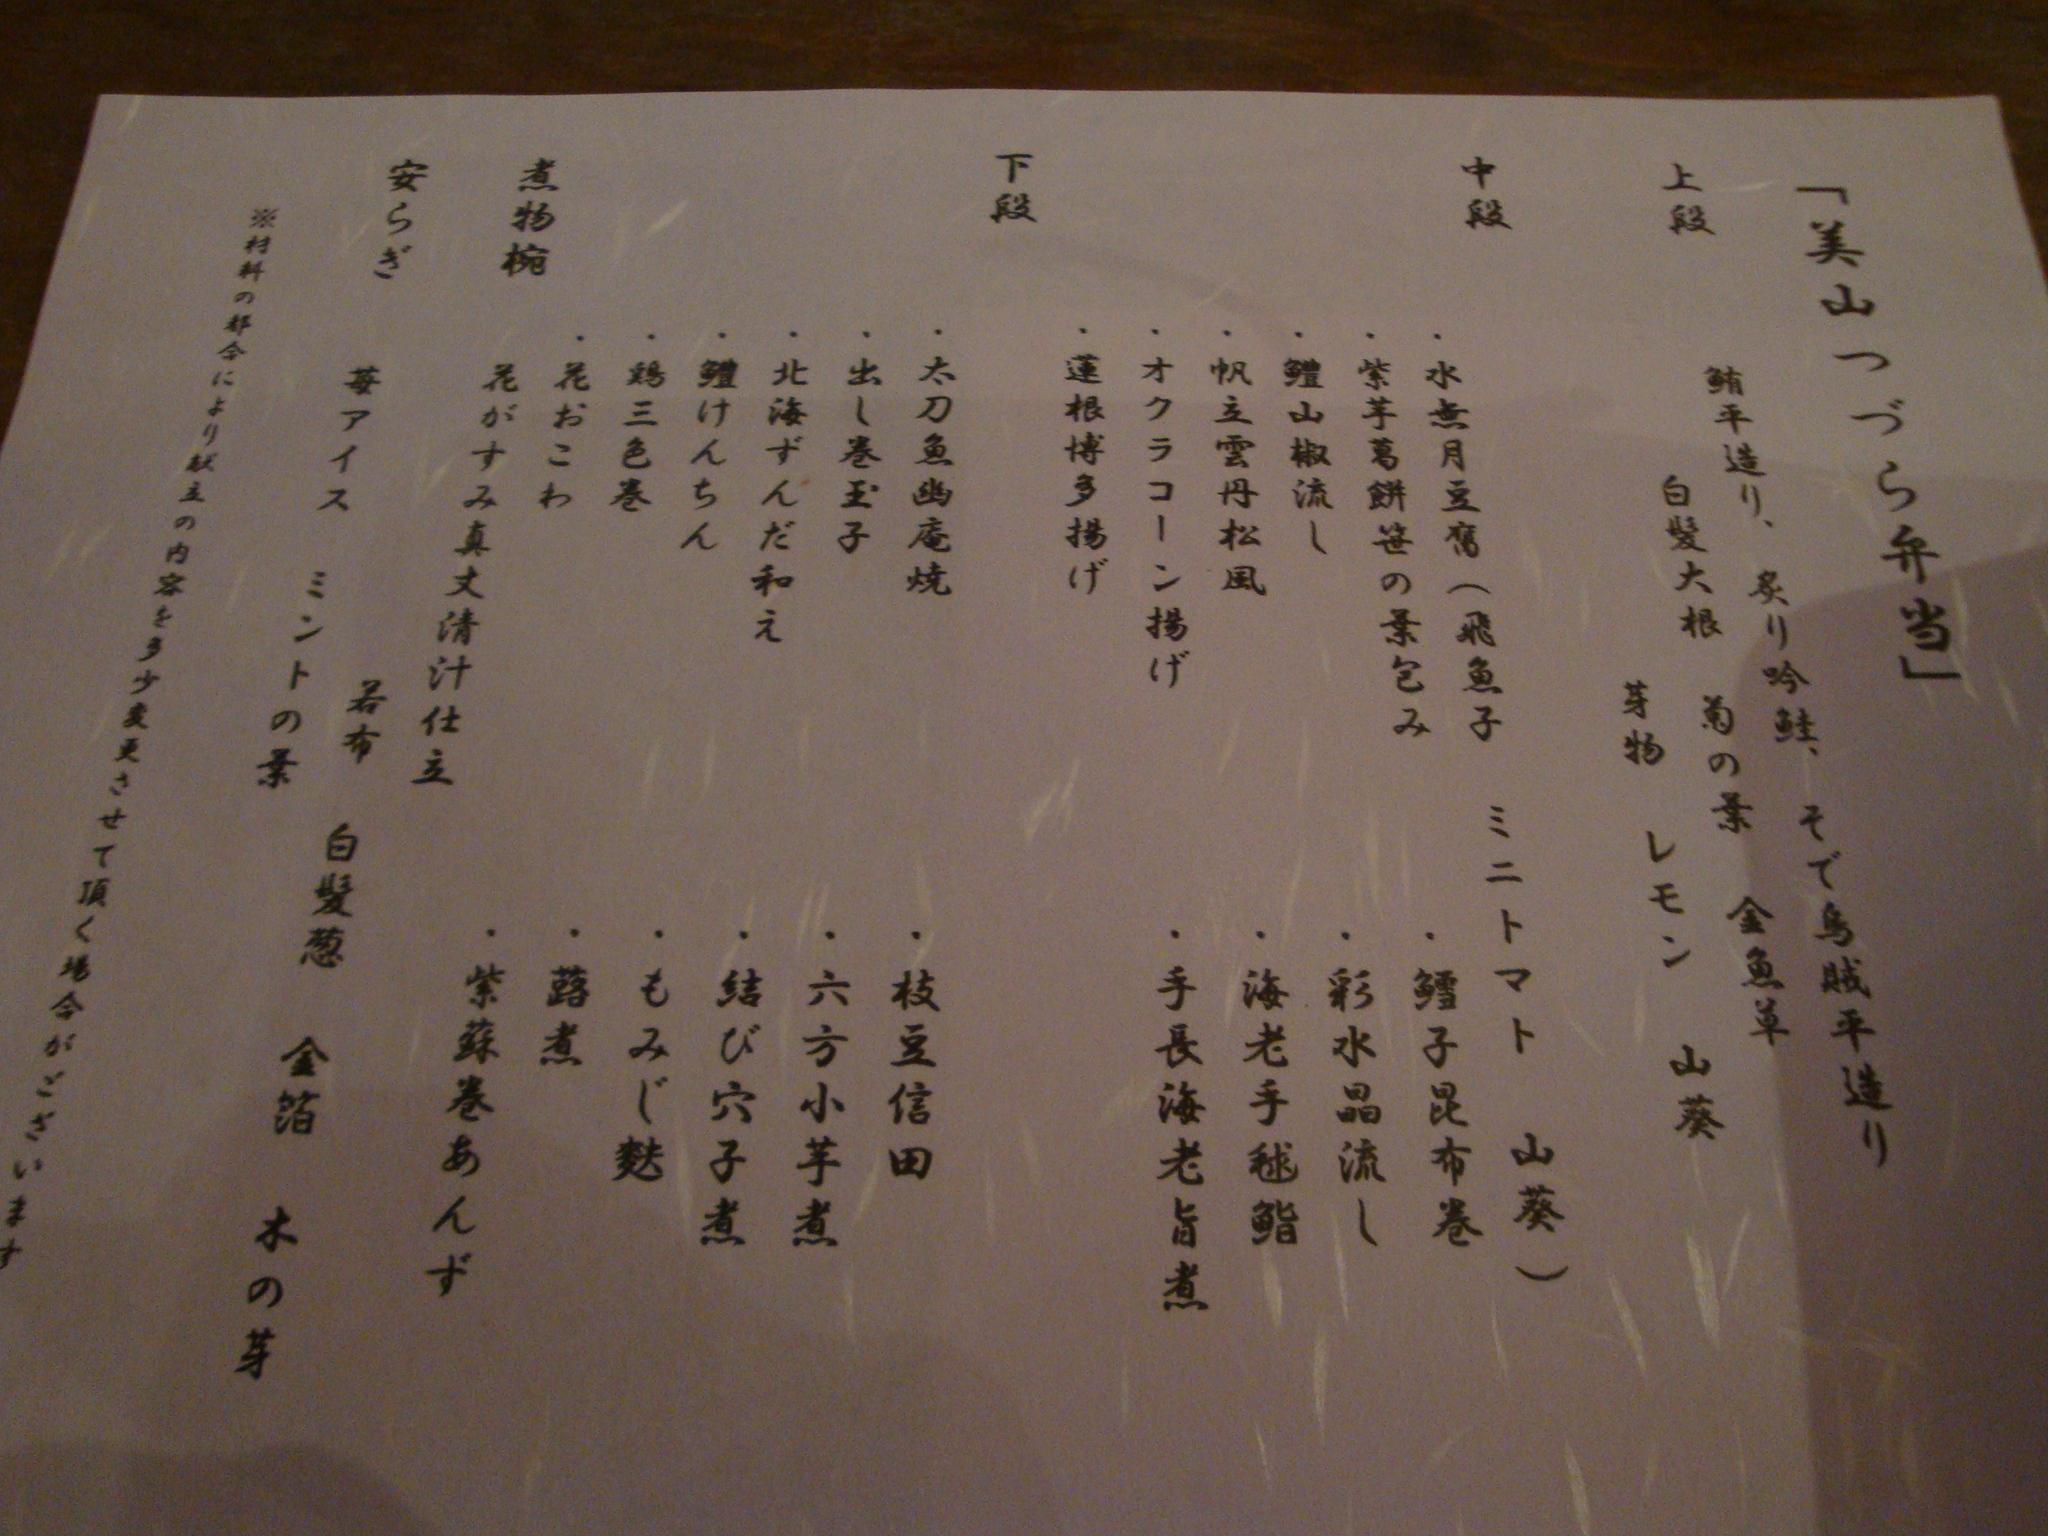 「美山つづら弁当」
上段
鮪平造り、炙り吟鮭、そで烏賊平造り
白髪大根 菊の葉 金魚草
芽物 レモン 山葵
中段
・水無月豆腐(飛魚子 ミニトマト 山葵)
・紫芋葛餅笹の葉包み
・鱧山椒流し
・帆立雲丹松風
・オクラコーン揚げ
・蓮根博多揚げ
・鱈子昆布巻
・彩水晶流し
・海老手毬鮨
・手長海老旨煮
下段
・太刀魚幽庵焼
・出し巻玉子
・北海ずんだ和え
・鱧けんちん
・鶏三色巻
・花おこわ
・枝豆信田
・六方小芋煮
・結び穴子煮
・もみじ麩
・蕗煮
・紫蘇巻あんず
煮物椀
花がすみ真丈清汁仕立
若布 白髪葱 金箔 木の芽
安らぎ
苺アイス ミントの葉
※材料の都合により献立の内容を多少変更させて頂く場合がございます